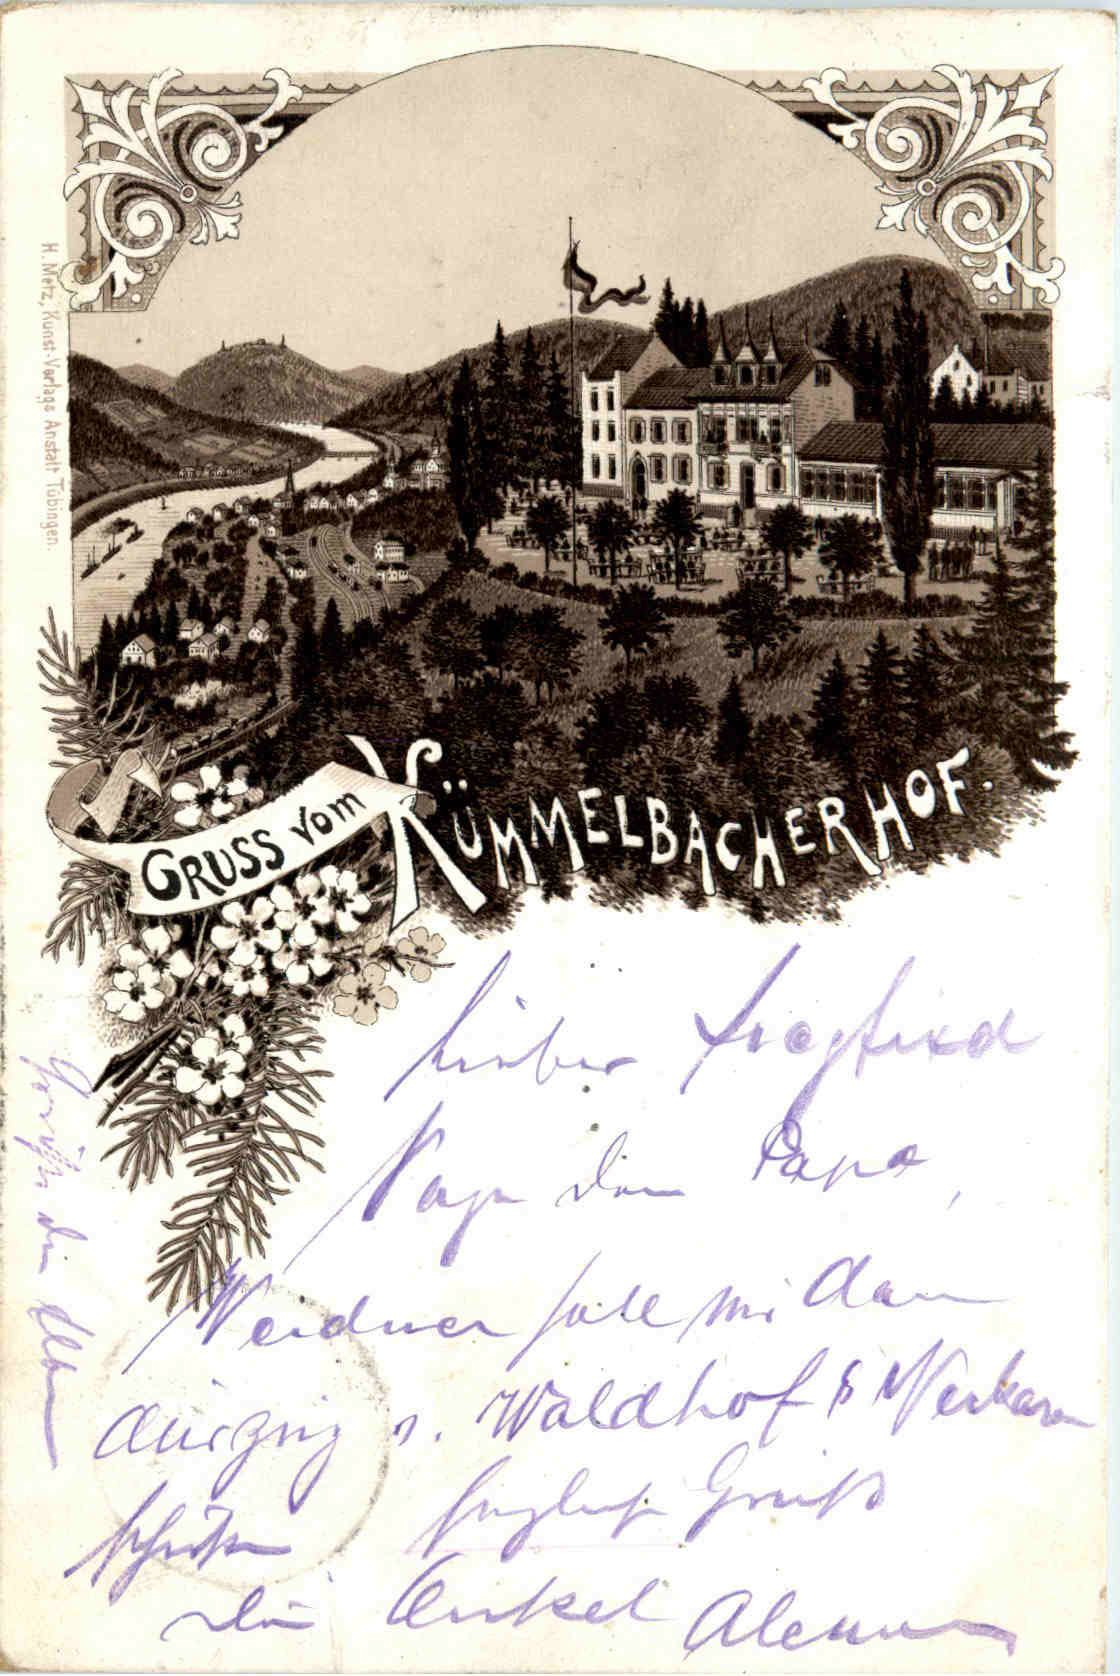 H. Metz, Kunst-Verlags Anstalt Tübingen.
GRUSS vom KÜMMELBACHERHOF.
Lieber Siegfried
Sage dem Papa,
Weidner soll mir den
Auszug v. Waldhof &
schicken herzlich Gruß
Dein Onkel